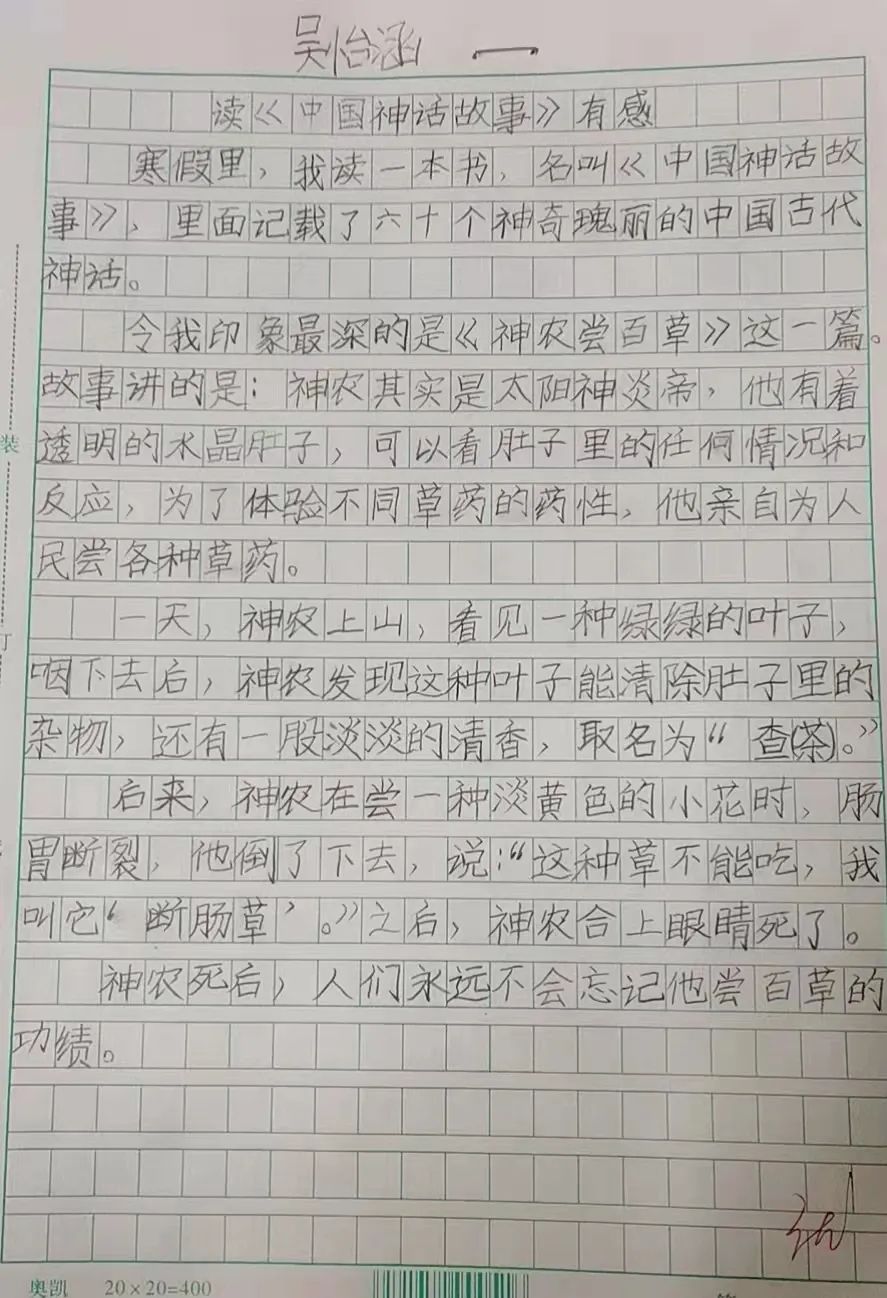 吴怡涵 一
读《中国神话故事》有感
寒假里，我读一本书，名叫《中国神话故
事》，里面记载了六十个神奇瑰丽的中国古代
神话。
令我印象最深的是《神农尝百草》这一篇。
故事讲的是：神农其实是太阳神炎帝，他有着
透明的水晶肚子，可以看肚子里的任何情况和
反应，为了体验不同草药的药性，他亲自为人
民尝各种草药。
一天，神农上山，看见一种绿绿的叶子，
咽下去后，神农发现这种叶子能清除肚子里的
杂物，还有一股淡淡的清香，取名为“查(茶)。”
后来，神农在尝一种淡黄色的小花时，肠
胃断裂，他倒了下去，说：“这种草不能吃，我
叫它‘断肠草’。”之后，神农合上眼睛死了。
神农死后，人们永远不会忘记他尝百草的
功绩。
装
订
奥凯 20×20=400